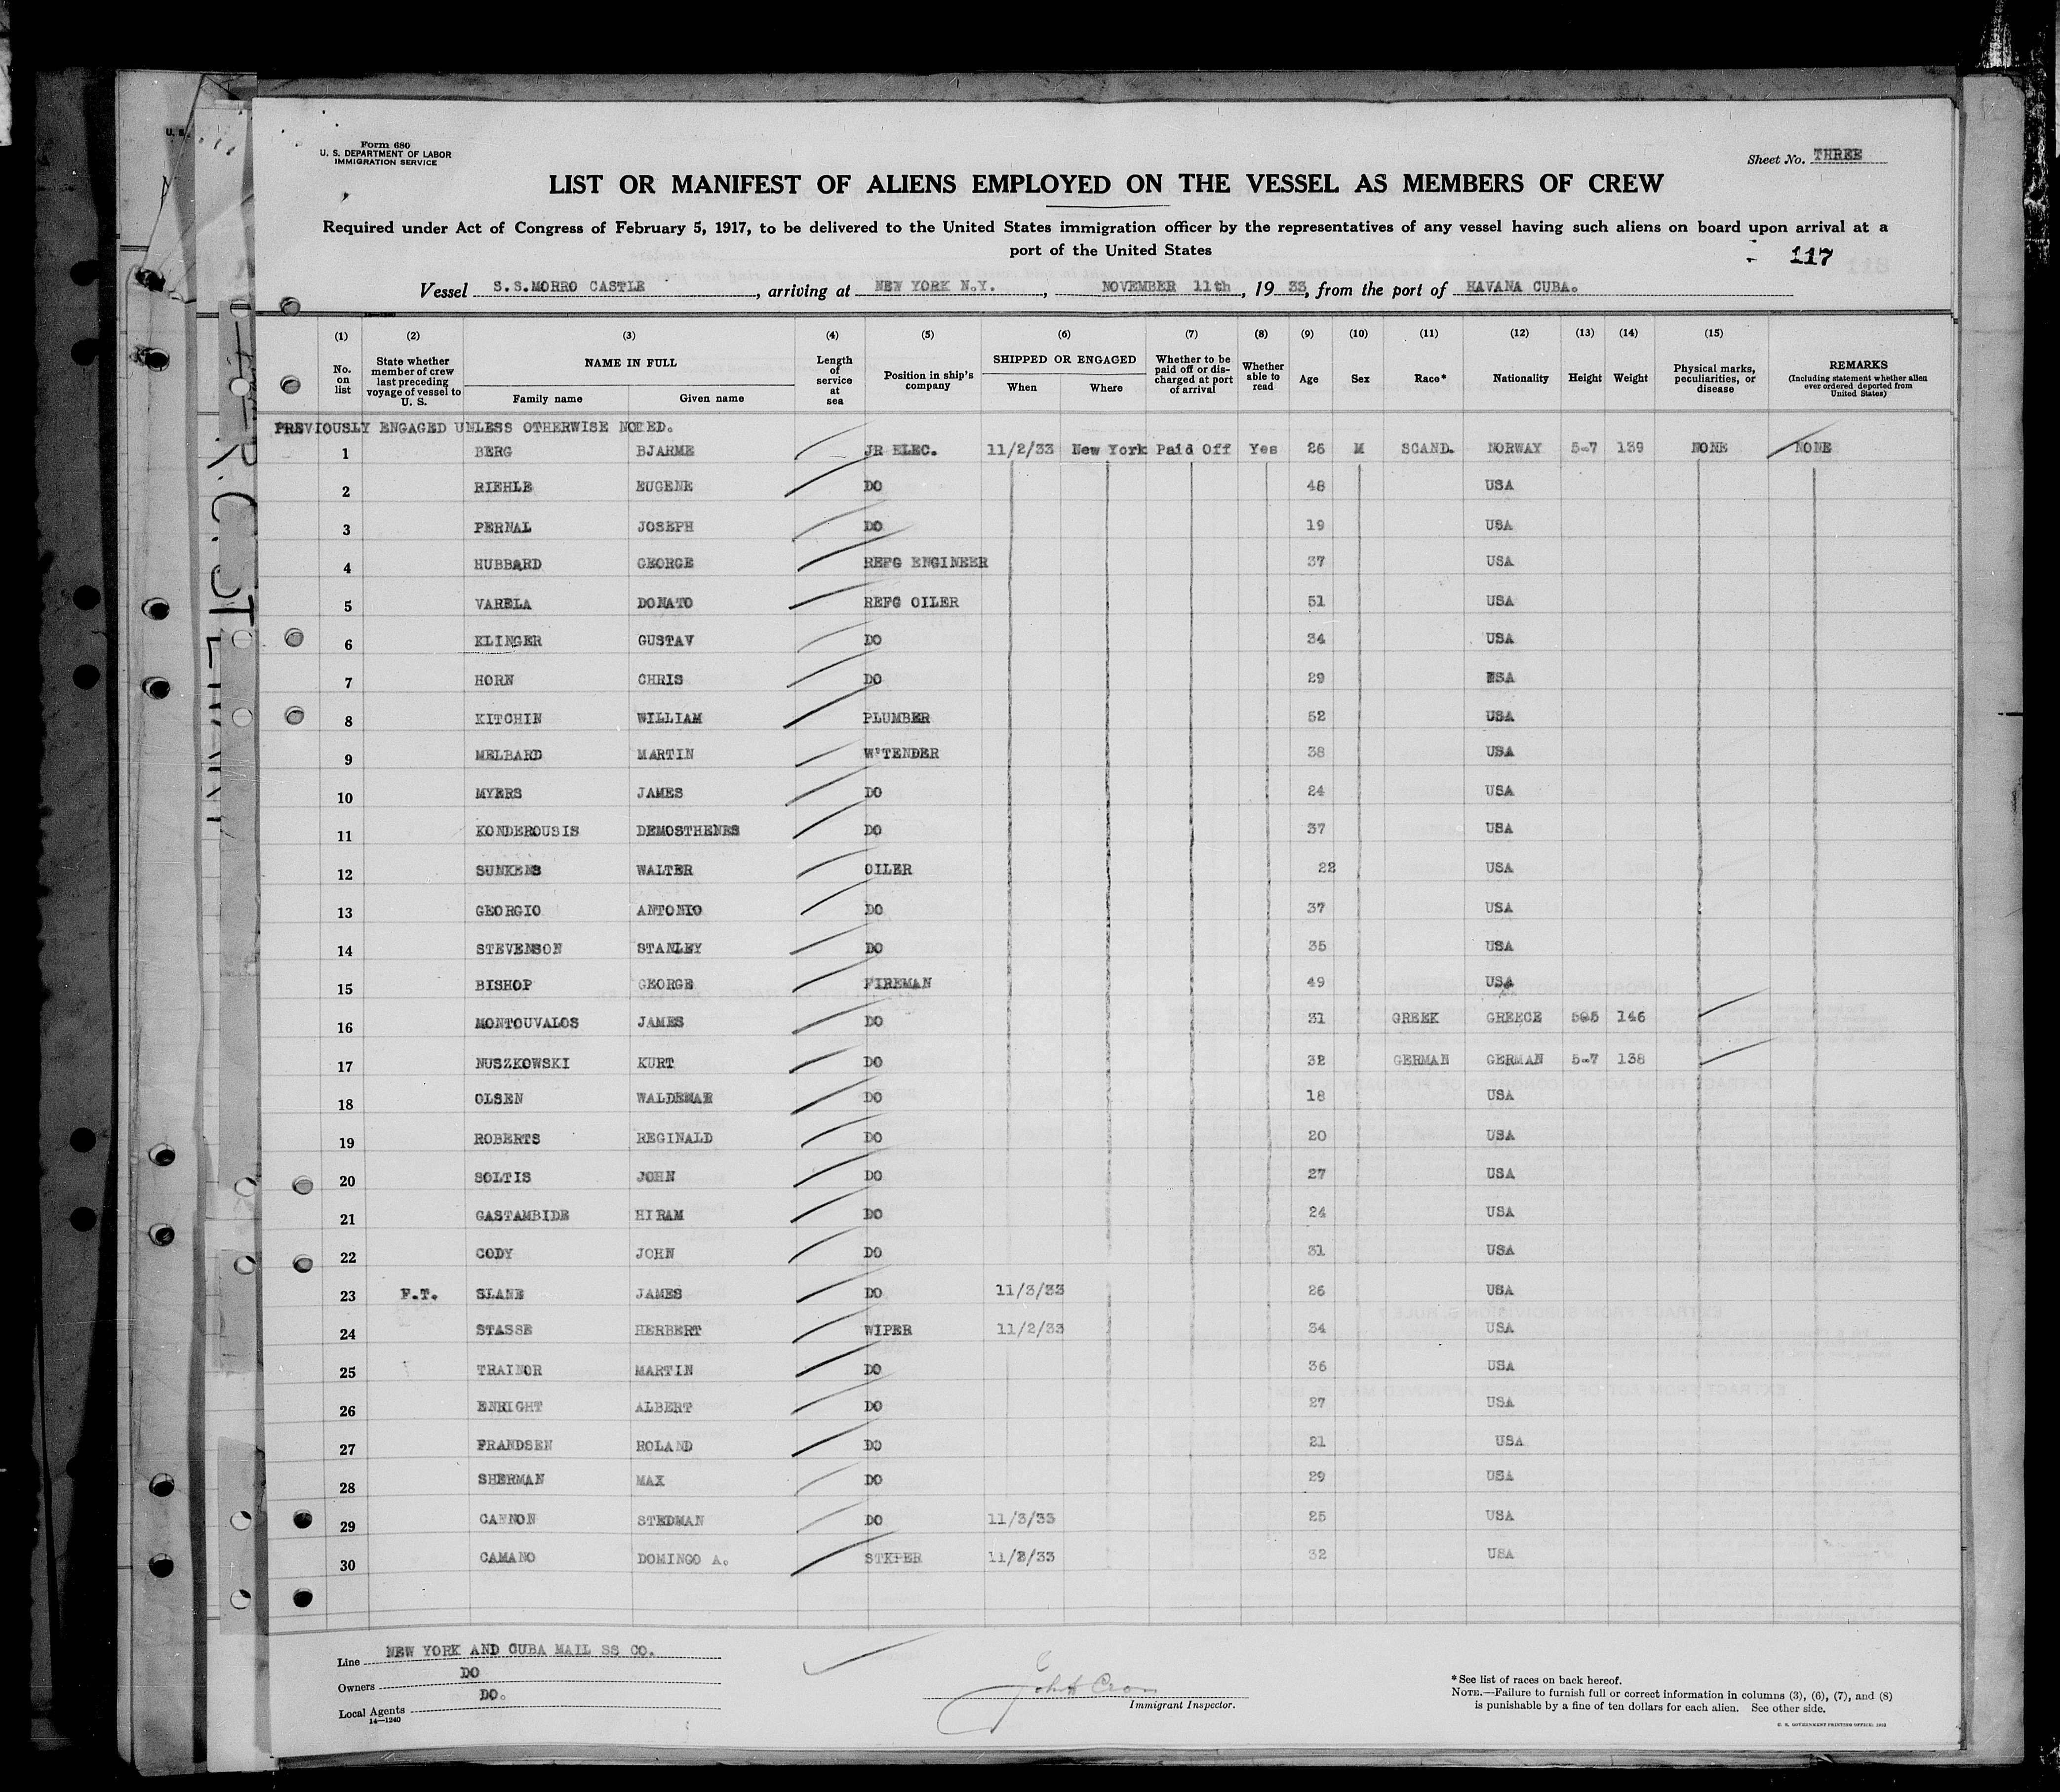 Form 680
U. S. DEPARTMENT OF LABOR
IMMIGRATION SERVICE
Sheet No. THREE
LIST OR MANIFEST OF ALIENS EMPLOYED ON THE VESSEL AS MEMBERS OF CREW
Required under Act of Congress of February 5, 1917, to be delivered to the United States immigration officer by the representatives of any vessel having such aliens on board upon arrival at a
port of the United States
117
Vessel S.S.MORRO CASTLE, arriving at NEW YORK N.Y., NOVEMBER 11th, 1933, from the port of HAVANA CUBA.
(1) (2) (3) (4) (5) (6) (7) (8) (9) (10) (11) (12) (13) (14) (15)
No. on list
State whether member of crew last preceding voyage of vessel to U. S.
NAME IN FULL
Family name
Given name
Length of service at sea
Position in ship's company
SHIPPED OR ENGAGED
When
Where
Whether to be paid off or discharged at port of arrival
Whether able to read
Age
Sex
Race*
Nationality
Height
Weight
Physical marks, peculiarities, or disease
REMARKS
(Including statement whether alien ever ordered deported from United States)
PREVIOUSLY ENGAGED UNLESS OTHERWISE NOTED.
1 BERG BJARME JR ELEC. 11/2/33 New York Paid Off Yes 26 M SCAND. NORWAY 5-7 139 NONE NONE
2 RIEHLE EUGENE DO 48 USA
3 PERNAL JOSEPH DO 19 USA
4 HUBBARD GEORGE REFG ENGINEER 37 USA
5 VARELA DONATO REFG OILER 51 USA
6 KLINGER GUSTAV DO 34 USA
7 HORN CHRIS DO 29 USA
8 KITCHIN WILLIAM PLUMBER 52 USA
9 MELBARD MARTIN W'TENDER 38 USA
10 MYERS JAMES DO 24 USA
11 KONDEROUSIS DEMOSTHENES DO 37 USA
12 SUNKENS WALTER OILER 22 USA
13 GEORGIO ANTONIO DO 37 USA
14 STEVENSON STANLEY DO 35 USA
15 BISHOP GEORGE FIREMAN 49 USA
16 MONTOUVALOS JAMES DO 31 GREEK GREECE 5-5 146
17 NUSZKOWSKI KURT DO 32 GERMAN GERMAN 5-7 138
18 OLSEN WALDEMAR DO 18 USA
19 ROBERTS REGINALD DO 20 USA
20 SOLTIS JOHN DO 27 USA
21 GASTAMBIDE HIRAM DO 24 USA
22 CODY JOHN DO 31 USA
23 F.T. SLANE JAMES DO 11/3/33 26 USA
24 STASSE HERBERT WIPER 11/2/33 34 USA
25 TRAINOR MARTIN DO 36 USA
26 ENRIGHT ALBERT DO 27 USA
27 FRANDSEN ROLAND DO 21 USA
28 SHERMAN MAX DO 29 USA
29 CANNON STEDMAN DO 11/3/33 25 USA
30 CAMANO DOMINGO A. STKPER 11/2/33 32 USA
Line NEW YORK AND CUBA MAIL SS CO.
Owners DO
Local Agents DO.
14—1240
Immigrant Inspector.
*See list of races on back hereof.
NOTE.—Failure to furnish full or correct information in columns (3), (6), (7), and (8)
is punishable by a fine of ten dollars for each alien. See other side.
U. S. GOVERNMENT PRINTING OFFICE: 1932